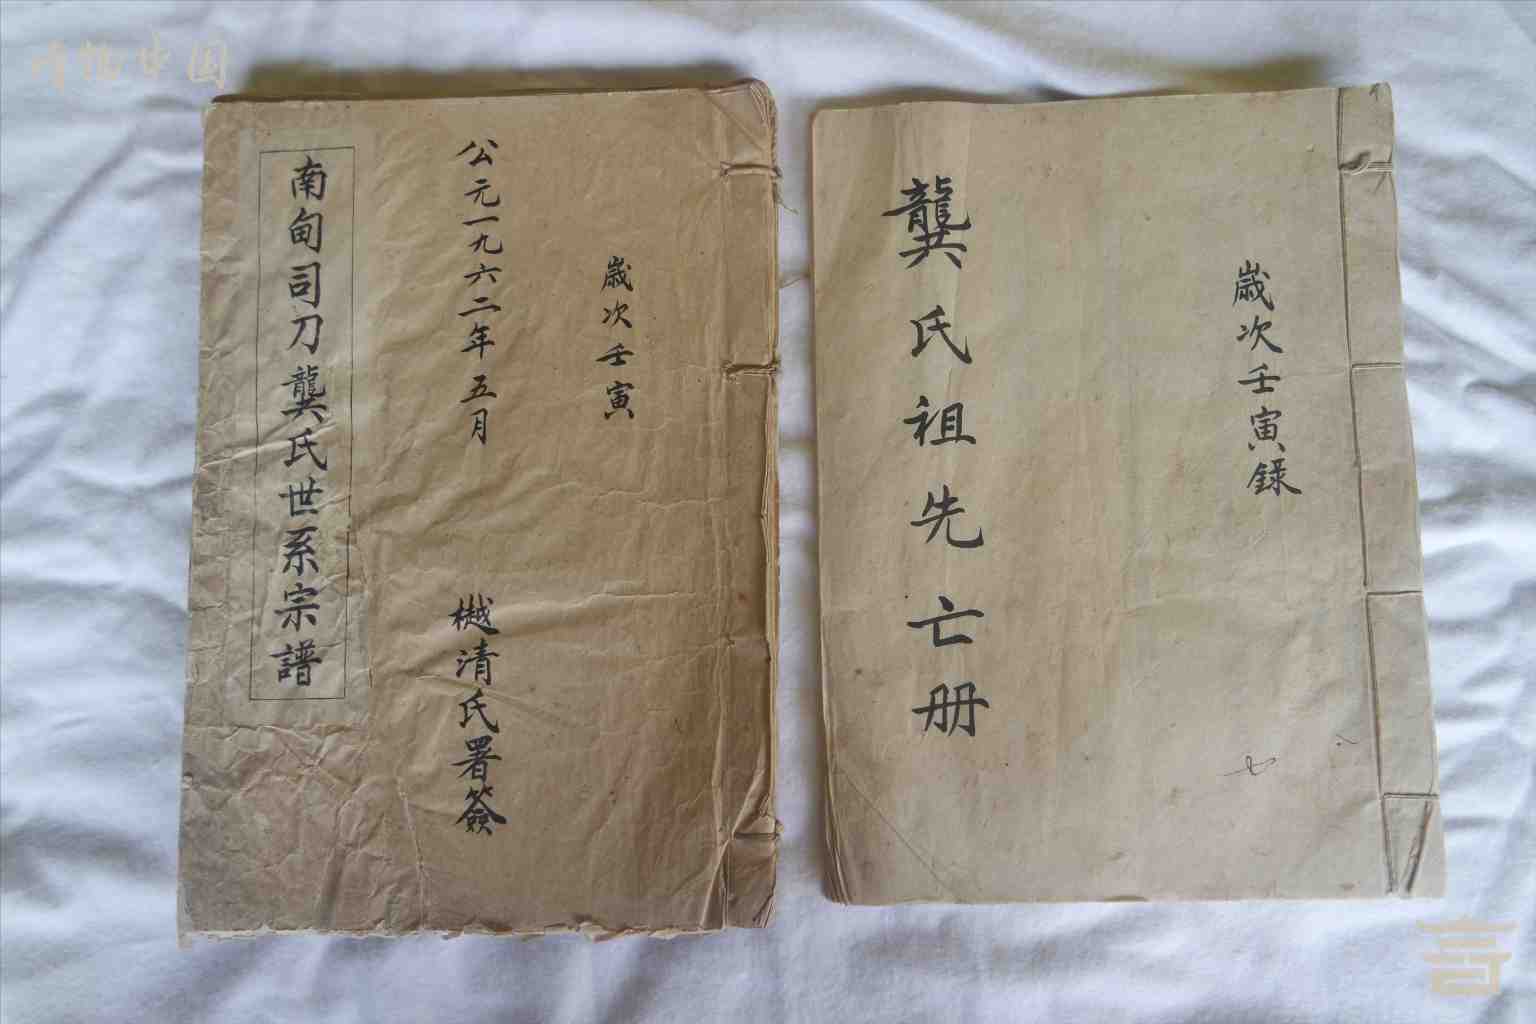 南甸司刀龔氏世系宗譜
公元一九六二年五月
樾清氏署簽
歲次壬寅
龔氏祖先亡册
歲次壬寅錄